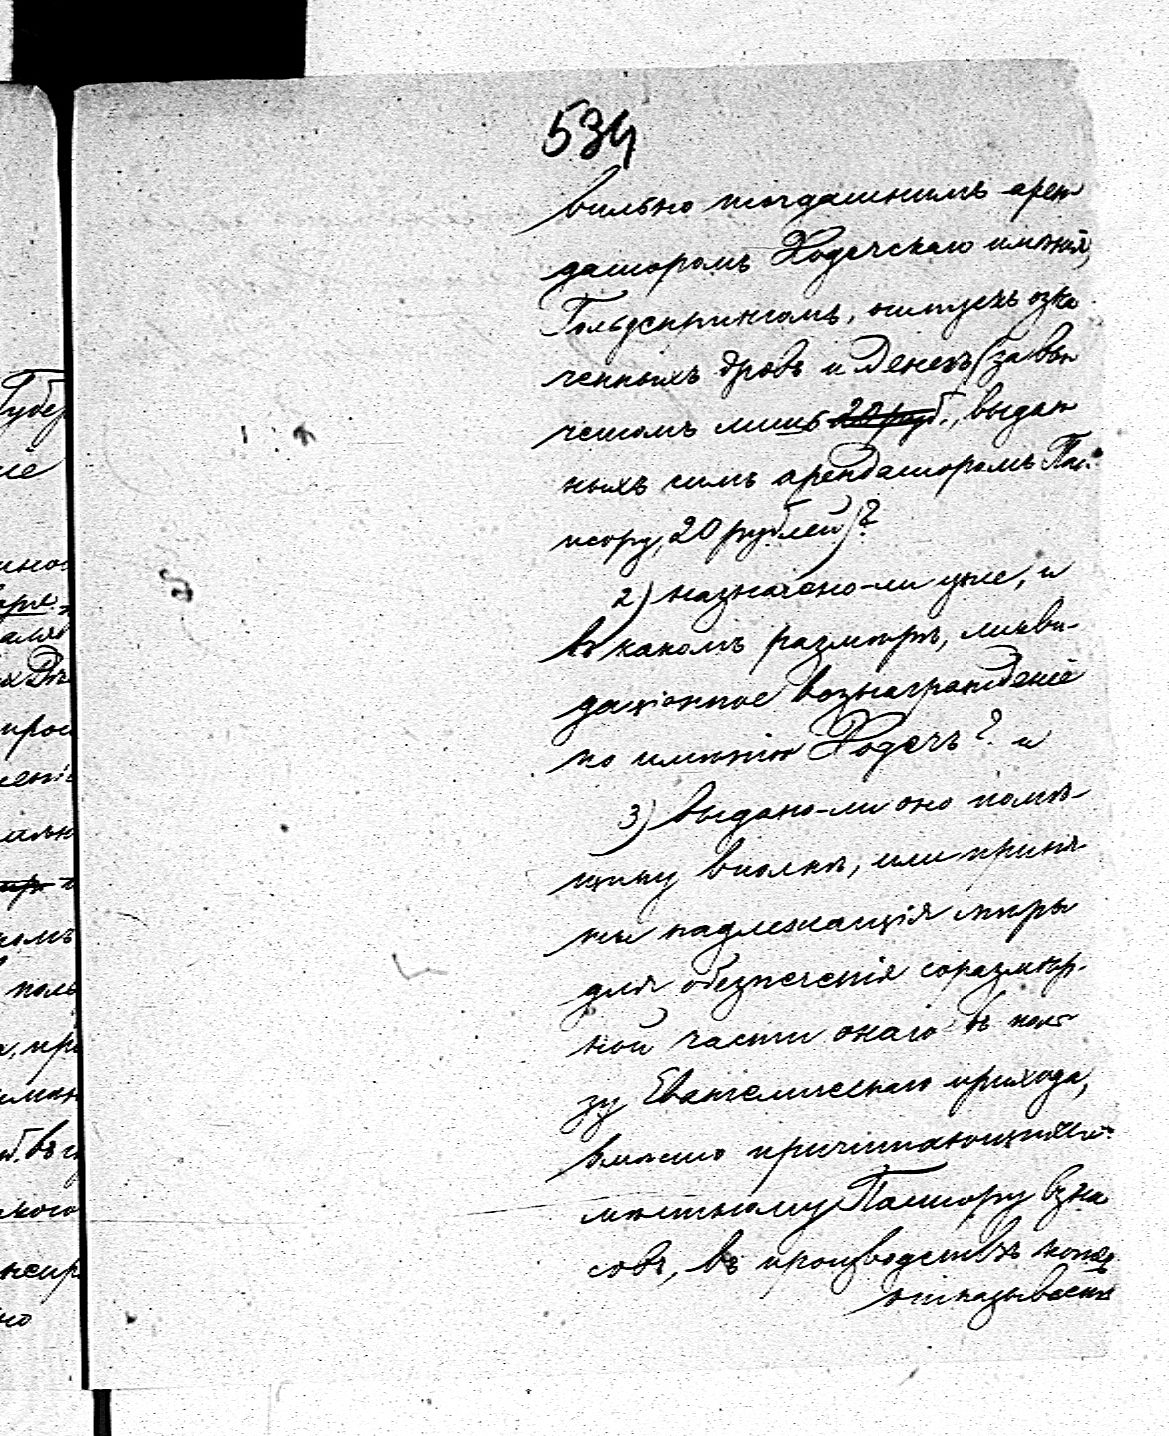 534
вильно тогдашнимъ арен-
даторомъ Ходечскаго имѣнія,
Гольдсрингомъ, отпускъ озна-
ченныхъ дровъ и денегъ (за вы-
четомъ лишь 20 руб., выдан-
ныхъ симъ арендаторомъ Па-
стору, 20 рублей)?
2) назначено-ли уже, и
въ какомъ размѣрѣ, ликви-
даціонное вознагражденіе
по имѣнію Ходечъ? и
3) выдано-ли оно помѣ-
щику вполнѣ, или приня-
ты надлежащія мѣры
для обезпеченія соразмѣр-
ной части онаго въ поль-
зу Евангелическаго прихода,
вмѣсто причитающихся
мѣстному Пастору взно-
совъ, въ производствѣ коихъ
отказывается